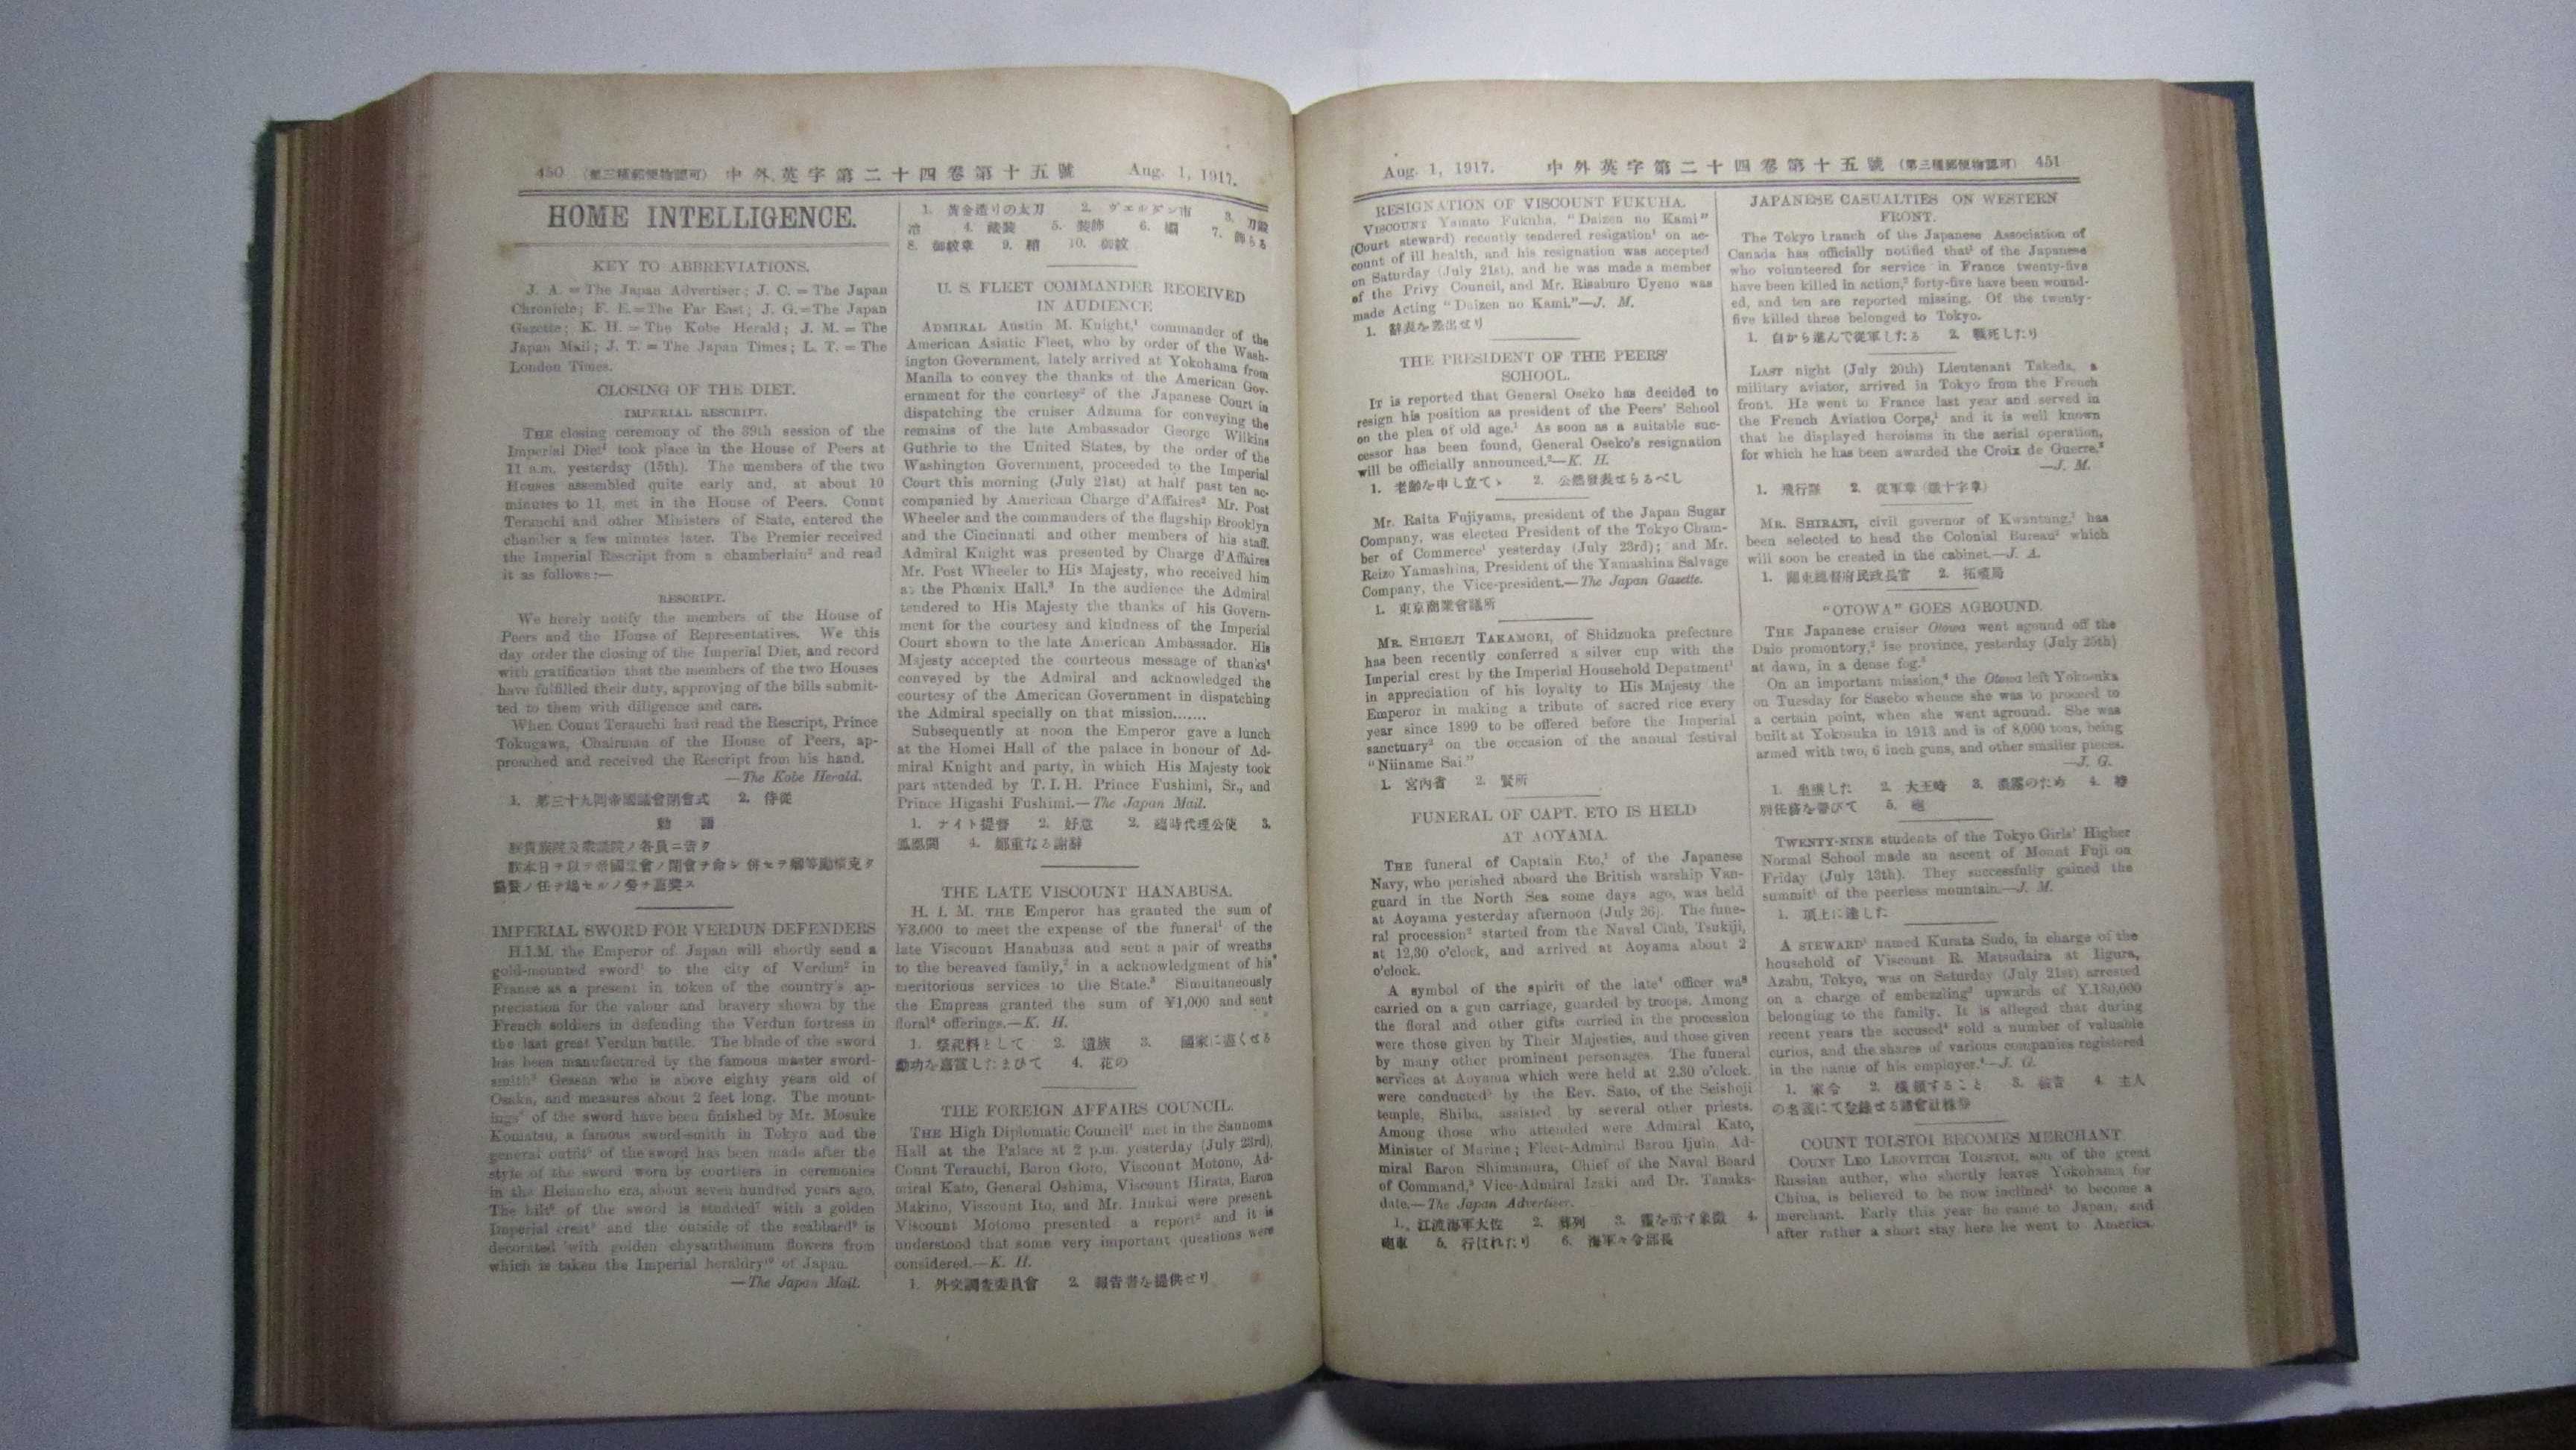 450 (第三種郵便物認可) 中外英字第二十四卷第十五號 Aug. 1, 1917.
HOME INTELLIGENCE.
KEY TO ABBREVIATIONS.
J. A. = The Japan Advertiser; J. C. = The Japan
Chronicle; F. E. = The Far East; J. G. = The Japan
Gazette; K. H. = The Kobe Herald; J. M. = The
Japan Mail; J. T. = The Japan Times; L. T. = The
London Times.
CLOSING OF THE DIET.
IMPERIAL RESCRIPT.
THE closing ceremony of the 39th session of the
Imperial Diet¹ took place in the House of Peers at
11 a.m. yesterday (15th). The members of the two
Houses assembled quite early and, at about 10
minutes to 11, met in the House of Peers. Count
Terauchi and other Ministers of State, entered the
chamber a few minutes later. The Premier received
the Imperial Rescript from a chamberlain² and read
it as follows:—
RESCRIPT.
We herely notify the members of the House of
Peers and the House of Representatives. We this
day order the closing of the Imperial Diet, and record
with gratification that the members of the two Houses
have fulfilled their duty, approving of the bills submit-
ted to them with diligence and care.
When Count Terauchi had read the Rescript, Prince
Tokugawa, Chairman of the House of Peers, ap-
proached and received the Rescript from his hand.
—The Kobe Herald.
1. 第三十九回帝國議會閉會式 2. 侍從
勅 語
朕貴族院及衆議院ノ各員ニ告ク
朕本日ヲ以テ帝國議會ノ閉會ヲ命シ併セテ
協賛ノ任ヲ竭セルノ勞ヲ嘉奬ス
IMPERIAL SWORD FOR VERDUN DEFENDERS
H.I.M. the Emperor of Japan will shortly send a
gold-mounted sword¹ to the city of Verdun² in
France as a present in token of the country's ap-
preciation for the valour and bravery shown by the
French soldiers in defending the Verdun fortress in
the last great Verdun battle. The blade of the sword
has been manufactured by the famous master sword-
smith³ Gessan who is above eighty years old of
Osaka, and measures about 2 feet long. The mount-
ings⁴ of the sword have been finished by Mr. Mosuke
Komatsu, a famous sword-smith in Tokyo and the
general outfit⁵ of the sword has been made after the
style of the sword worn by courtiers in ceremonies
in the Heiancho era, about seven hundred years ago.
The hilt⁶ of the sword is studded⁷ with a golden
Imperial crest⁸ and the outside of the scabbard⁹ is
decorated with golden chysanthemum flowers from
which is taken the Imperial heraldry¹⁰ of Japan.
—The Japan Mail.
1. 黄金造りの太刀 2. ヴエルダン市 3. 刀鍛
冶 4. 蔵裝 5. 裝飾 6. 欛 7. 飾らる
8. 御紋章 9. 鞘 10. 御紋
U. S. FLEET COMMANDER RECEIVED
IN AUDIENCE
ADMIRAL Austin M. Knight,¹ commander of the
American Asiatic Fleet, who by order of the Wash-
ington Government, lately arrived at Yokohama from
Manila to convey the thanks of the American Gov-
ernment for the courtesy² of the Japanese Court in
dispatching the cruiser Adzuma for conveying the
remains of the late Ambassador George Wilkins
Guthrie to the United States, by the order of the
Washington Government, proceeded to the Imperial
Court this morning (July 21st) at half past ten ac-
companied by American Charge d'Affaires² Mr. Post
Wheeler and the commanders of the flagship Brooklyn
and the Cincinnati and other members of his staff.
Admiral Knight was presented by Charge d'Affaires
Mr. Post Wheeler to His Majesty, who received him
at the Phœnix Hall.³ In the audience the Admiral
tendered to His Majesty the thanks of his Govern-
ment for the courtesy and kindness of the Imperial
Court shown to the late American Ambassador. His
Majesty accepted the courteous message of thanks⁴
conveyed by the Admiral and acknowledged the
courtesy of the American Government in dispatching
the Admiral specially on that mission.......
Subsequently at noon the Emperor gave a lunch
at the Homei Hall of the palace in honour of Ad-
miral Knight and party, in which His Majesty took
part attended by T. I. H. Prince Fushimi, Sr., and
Prince Higashi Fushimi.—The Japan Mail.
1. ナイト提督 2. 好意 2. 臨時代理公使 3.
鳳凰閣 4. 鄭重なる謝辭
THE LATE VISCOUNT HANABUSA.
H. I. M. THE Emperor has granted the sum of
¥3,000 to meet the expense of the funeral¹ of the
late Viscount Hanabusa and sent a pair of wreaths
to the bereaved family,² in a acknowledgment of his
meritorious services to the State.³ Simultaneously
the Empress granted the sum of ¥1,000 and sent
floral⁴ offerings.—K. H.
1. 祭祀料として 2. 遺族 3. 國家に盡くせる
勳功を嘉賞したまひて 4. 花の
THE FOREIGN AFFAIRS COUNCIL.
THE High Diplomatic Council¹ met in the Sannoma
Hall at the Palace at 2 p.m. yesterday (July 23rd),
Count Terauchi, Baron Goto, Viscount Motono, Ad-
miral Kato, General Oshima, Viscount Hirata, Baron
Makino, Viscount Ito, and Mr. Inukai were present.
Viscount Motomo presented a report² and it is
understood that some very important questions were
considered.—K. H.
1. 外交調査委員會 2. 報告書を提供せり
Aug. 1, 1917. 中外英字第二十四卷第十五號 (第三種郵便物認可) 451
RESIGNATION OF VISCOUNT FUKUHA.
VISCOUNT Yamato Fukuha, "Daizen no Kami"
(Court steward) recently tendered resigation¹ on ac-
count of ill health, and his resignation was accepted
on Saturday (July 21st), and he was made a member
of the Privy Council, and Mr. Risaburo Uyeno was
made Acting "Daizen no Kami."—J. M.
1. 辭表を差出せり
THE PRESIDENT OF THE PEERS'
SCHOOL.
IT is reported that General Oseko has decided to
resign his position as president of the Peers' School
on the plea of old age.¹ As soon as a suitable suc-
cessor has been found, General Oseko's resignation
will be officially announced.²—K. H.
1. 老齡を申し立てゝ 2. 公然發表せらるべし
Mr. Raita Fujiyama, president of the Japan Sugar
Company, was elected President of the Tokyo Cham-
ber of Commerce¹ yesterday (July 23rd); and Mr.
Reizo Yamashina, President of the Yamashina Salvage
Company, the Vice-president.—The Japan Gazette.
1. 東京商業會議所
MR. SHIGEJI TAKAMORI, of Shidzuoka prefecture
has been recently conferred a silver cup with the
Imperial crest by the Imperial Household Depatment¹
in appreciation of his loyalty to His Majesty the
Emperor in making a tribute of sacred rice every
year since 1899 to be offered before the Imperial
sanctuary² on the occasion of the annual festival
"Niiname Sai."
1. 宮內省 2. 賢所
FUNERAL OF CAPT. ETO IS HELD
AT AOYAMA.
THE funeral of Captain Eto,¹ of the Japanese
Navy, who perished aboard the British warship Van-
guard in the North Sea some days ago, was held
at Aoyama yesterday afternoon (July 26). The fune-
ral procession² started from the Naval Club, Tsukiji,
at 12,30 o'clock, and arrived at Aoyama about 2
o'clock.
A symbol of the spirit of the late⁴ officer was
carried on a gun carriage, guarded by troops. Among
the floral and other gifts carried in the procession
were those given by Their Majesties, and those given
by many other prominent personages. The funeral
services at Aoyama which were held at 2.30 o'clock.
were conducted⁵ by the Rev. Sato, of the Seishoji
temple, Shiba, assisted by several other priests.
Among those who attended were Admiral Kato,
Minister of Marine; Fleet-Admiral Baron Ijuin, Ad-
miral Baron Shimamura, Chief of the Naval Board
of Command,³ Vice-Admiral Izaki and Dr. Tanaka-
date.—The Japan Advertiser.
1. 江渡海軍大佐 2. 葬列 3. 靈を示す象徵 4.
砲車 5. 行はれたり 6. 海軍々令部長
JAPANESE CASUALTIES ON WESTERN
FRONT.
The Tokyo branch of the Japanese Association of
Canada has officially notified that¹ of the Japanese
who volunteered for service in France twenty-five
have been killed in action,² forty-five have been wound-
ed, and ten are reported missing. Of the twenty-
five killed three belonged to Tokyo.
1. 自から進んで從軍したる 2. 戰死したり
LAST night (July 20th) Lieutenant Takeda, a
military aviator, arrived in Tokyo from the French
front. He went to France last year and served in
the French Aviation Corps,¹ and it is well known
that he displayed heroisms in the aerial operation,
for which he has been awarded the Croix de Guerre.²
—J. M.
1. 飛行隊 2. 從軍章 (鐵十字章)
MR. SHIRANI, civil governor of Kwantung,¹ has
been selected to head the Colonial Bureau² which
will soon be created in the cabinet.—J. A.
1. 關東總督府民政長官 2. 拓殖局
"OTOWA" GOES AGROUND.
THE Japanese cruiser Otowa went agound off the
Daio promontory,² ise province, yesterday (July 25th)
at dawn, in a dense fog.³
On an important mission,⁴ the Otowa left Yokosuka
on Tuesday for Sasebo whence she was to proceed to
a certain point, when she went aground. She was
built at Yokosuka in 1913 and is of 8,000 tons, being
armed with two, 6 inch guns, and other smaller pieces.
—J. G.
1. 坐礁した 2. 大王崎 3. 濃霧のため 4. 特
別任務を帶びて 5. 砲
TWENTY-NINE students of the Tokyo Girls' Higher
Normal School made an ascent of Mount Fuji on
Friday (July 13th). They successfully gained the
summit¹ of the peerless mountain.—J. M.
1. 頂上に達した
A STEWARD¹ named Kurata Sudo, in charge of the
household of Viscount R. Matsudaira at Iigura,
Azabu, Tokyo, was on Saturday (July 21st) arrested
on a charge of embezzling² upwards of Y.180,000
belonging to the family. It is alleged that during
recent years the accused³ sold a number of valuable
curios, and the shares of various companies registered
in the name of his employer.⁴—J. G.
1. 家令 2. 橫領すること 3. 被告 4. 主人
の名義にて登錄せる諸會社株券
COUNT TOLSTOI BECOMES MERCHANT.
COUNT LEO LEOVITCH TOLSTOI, son of the great
Russian author, who shortly leaves Yokohama for
China, is believed to be now inclined¹ to become a
merchant. Early this year he came to Japan, and
after rather a short stay here he went to America.